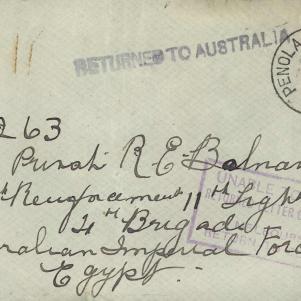 RETURNED TO AUSTRALIA
PENOLA
263
Privat R E Balnav
Reinforcement 11th Light
4th Brigade
ralian Imperial Forc
Egypt
UNABLE
RETURN